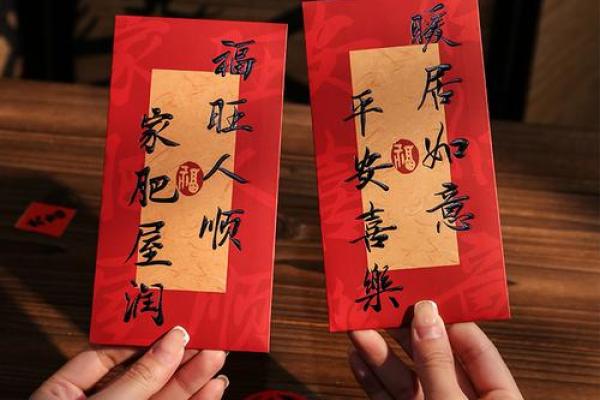 福旺人顺
家肥屋润
福
暖居如意
平安喜樂
福